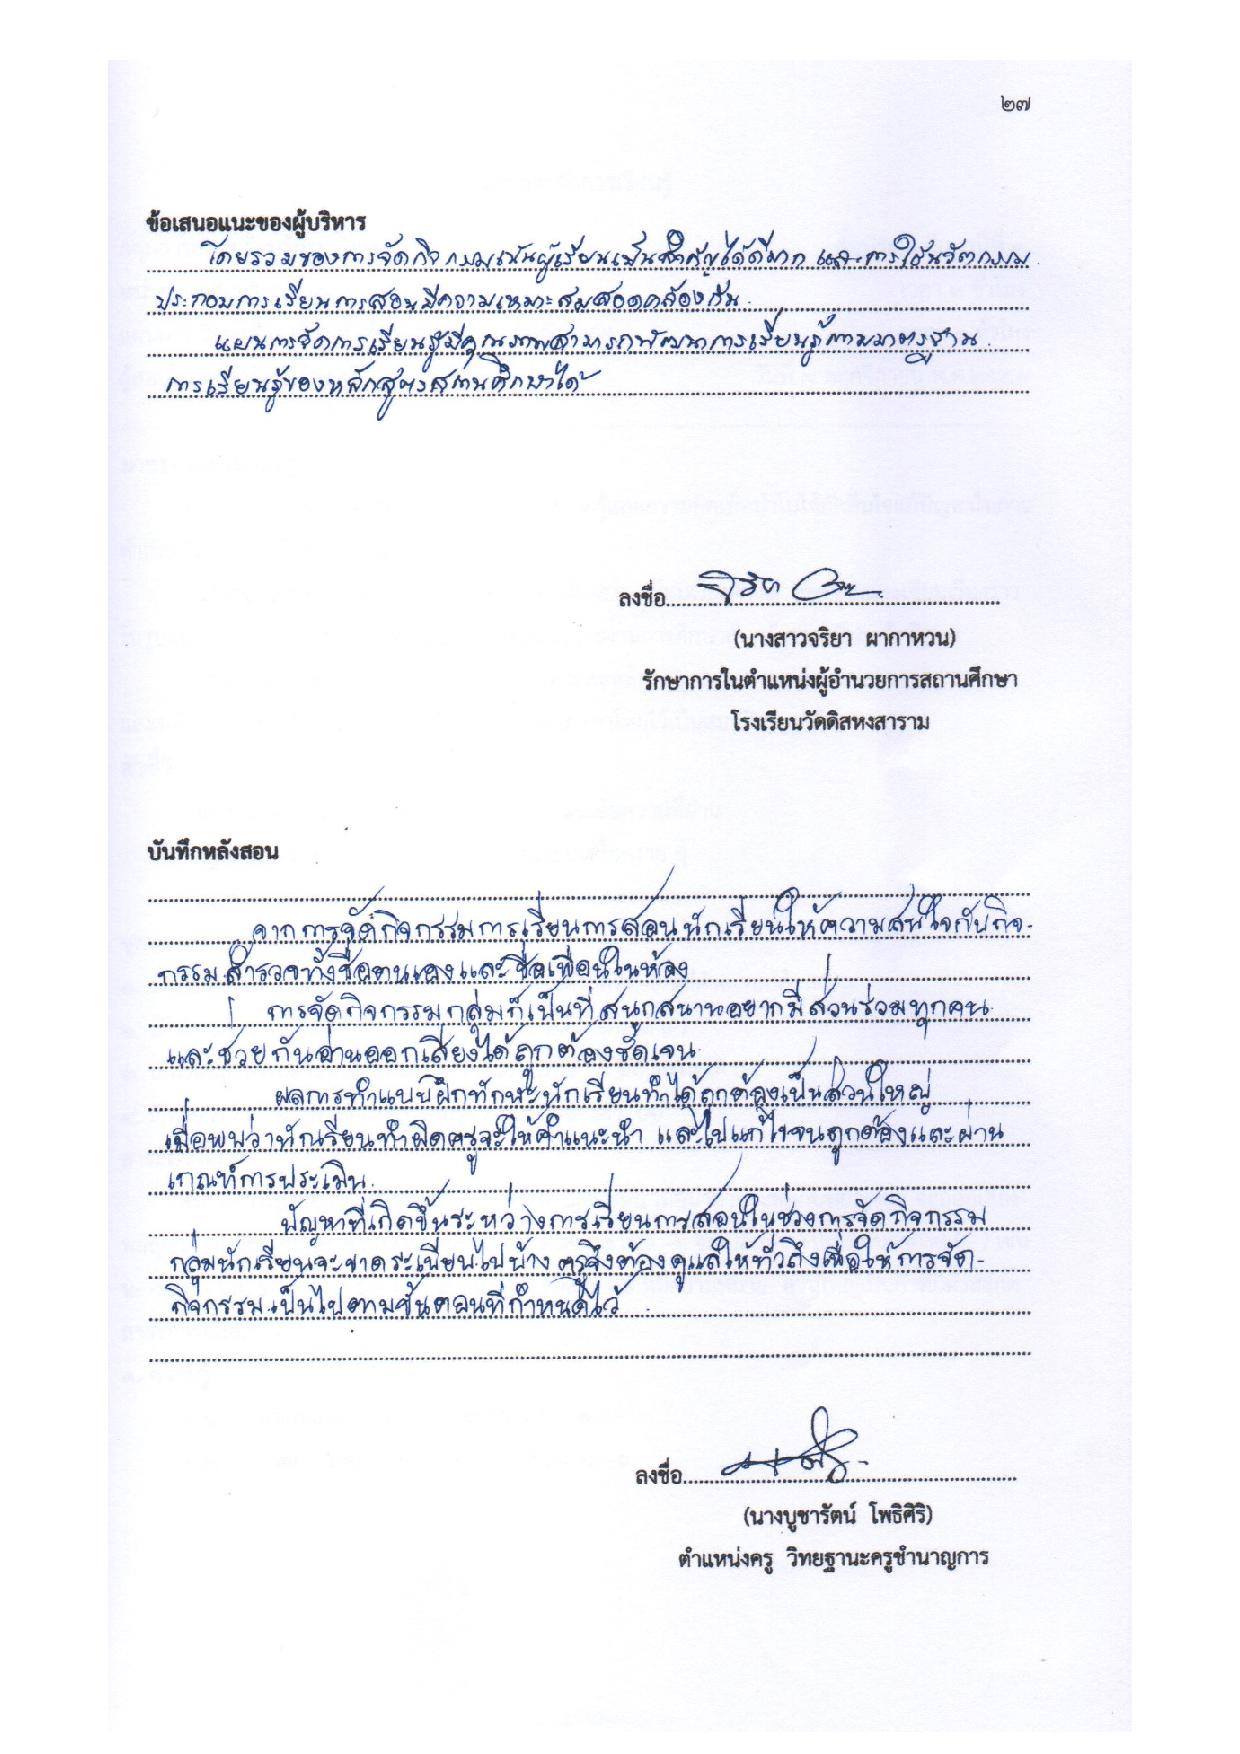 ๒๗
ข้อเสนอแนะของผู้บริหาร
โดยรวมของการจัดกิจกรรมเน้นผู้เรียนเป็นสำคัญได้ดีมาก และการใช้นวัตกรรม
ประกอบการเรียนการสอนมีความเหมาะสมสอดคล้องกัน
แผนการจัดการเรียนรู้มีคุณภาพสามารถพัฒนาการเรียนรู้ตามมาตรฐาน
การเรียนรู้ของหลักสูตรสถานศึกษาได้
ลงชื่อ
(นางสาวจริยา ผากาหวน)
รักษาการในตำแหน่งผู้อำนวยการสถานศึกษา
โรงเรียนวัดดิสหงสาราม
บันทึกหลังสอน
จากการจัดกิจกรรมการเรียนการสอนนักเรียนให้ความสนใจกับกิจ-
กรรมสำรวจทั้งชื่อตนเองและชื่อเพื่อนในห้อง
การจัดกิจกรรมกลุ่มก็เป็นที่สนุกสนานอยากมีส่วนร่วมทุกคน
และช่วยกันอ่านออกเสียงได้ถูกต้องชัดเจน
ผลการทำแบบฝึกทักษะนักเรียนทำได้ถูกต้องเป็นส่วนใหญ่
เมื่อพบว่านักเรียนทำผิดครูจะให้คำแนะนำ และไปแก้ไขจนถูกต้องและผ่าน
เกณฑ์การประเมิน
ปัญหาที่เกิดขึ้นระหว่างการเรียนการสอนในช่วงการจัดกิจกรรม
กลุ่มนักเรียนจะขาดระเบียบไปบ้าง ครูจึงต้องดูแลให้ทั่วถึงเพื่อให้การจัด-
กิจกรรมเป็นไปตามขั้นตอนที่กำหนดไว้
ลงชื่อ
(นางบูชารัตน์ โพธิศิริ)
ตำแหน่งครู วิทยฐานะครูชำนาญการ